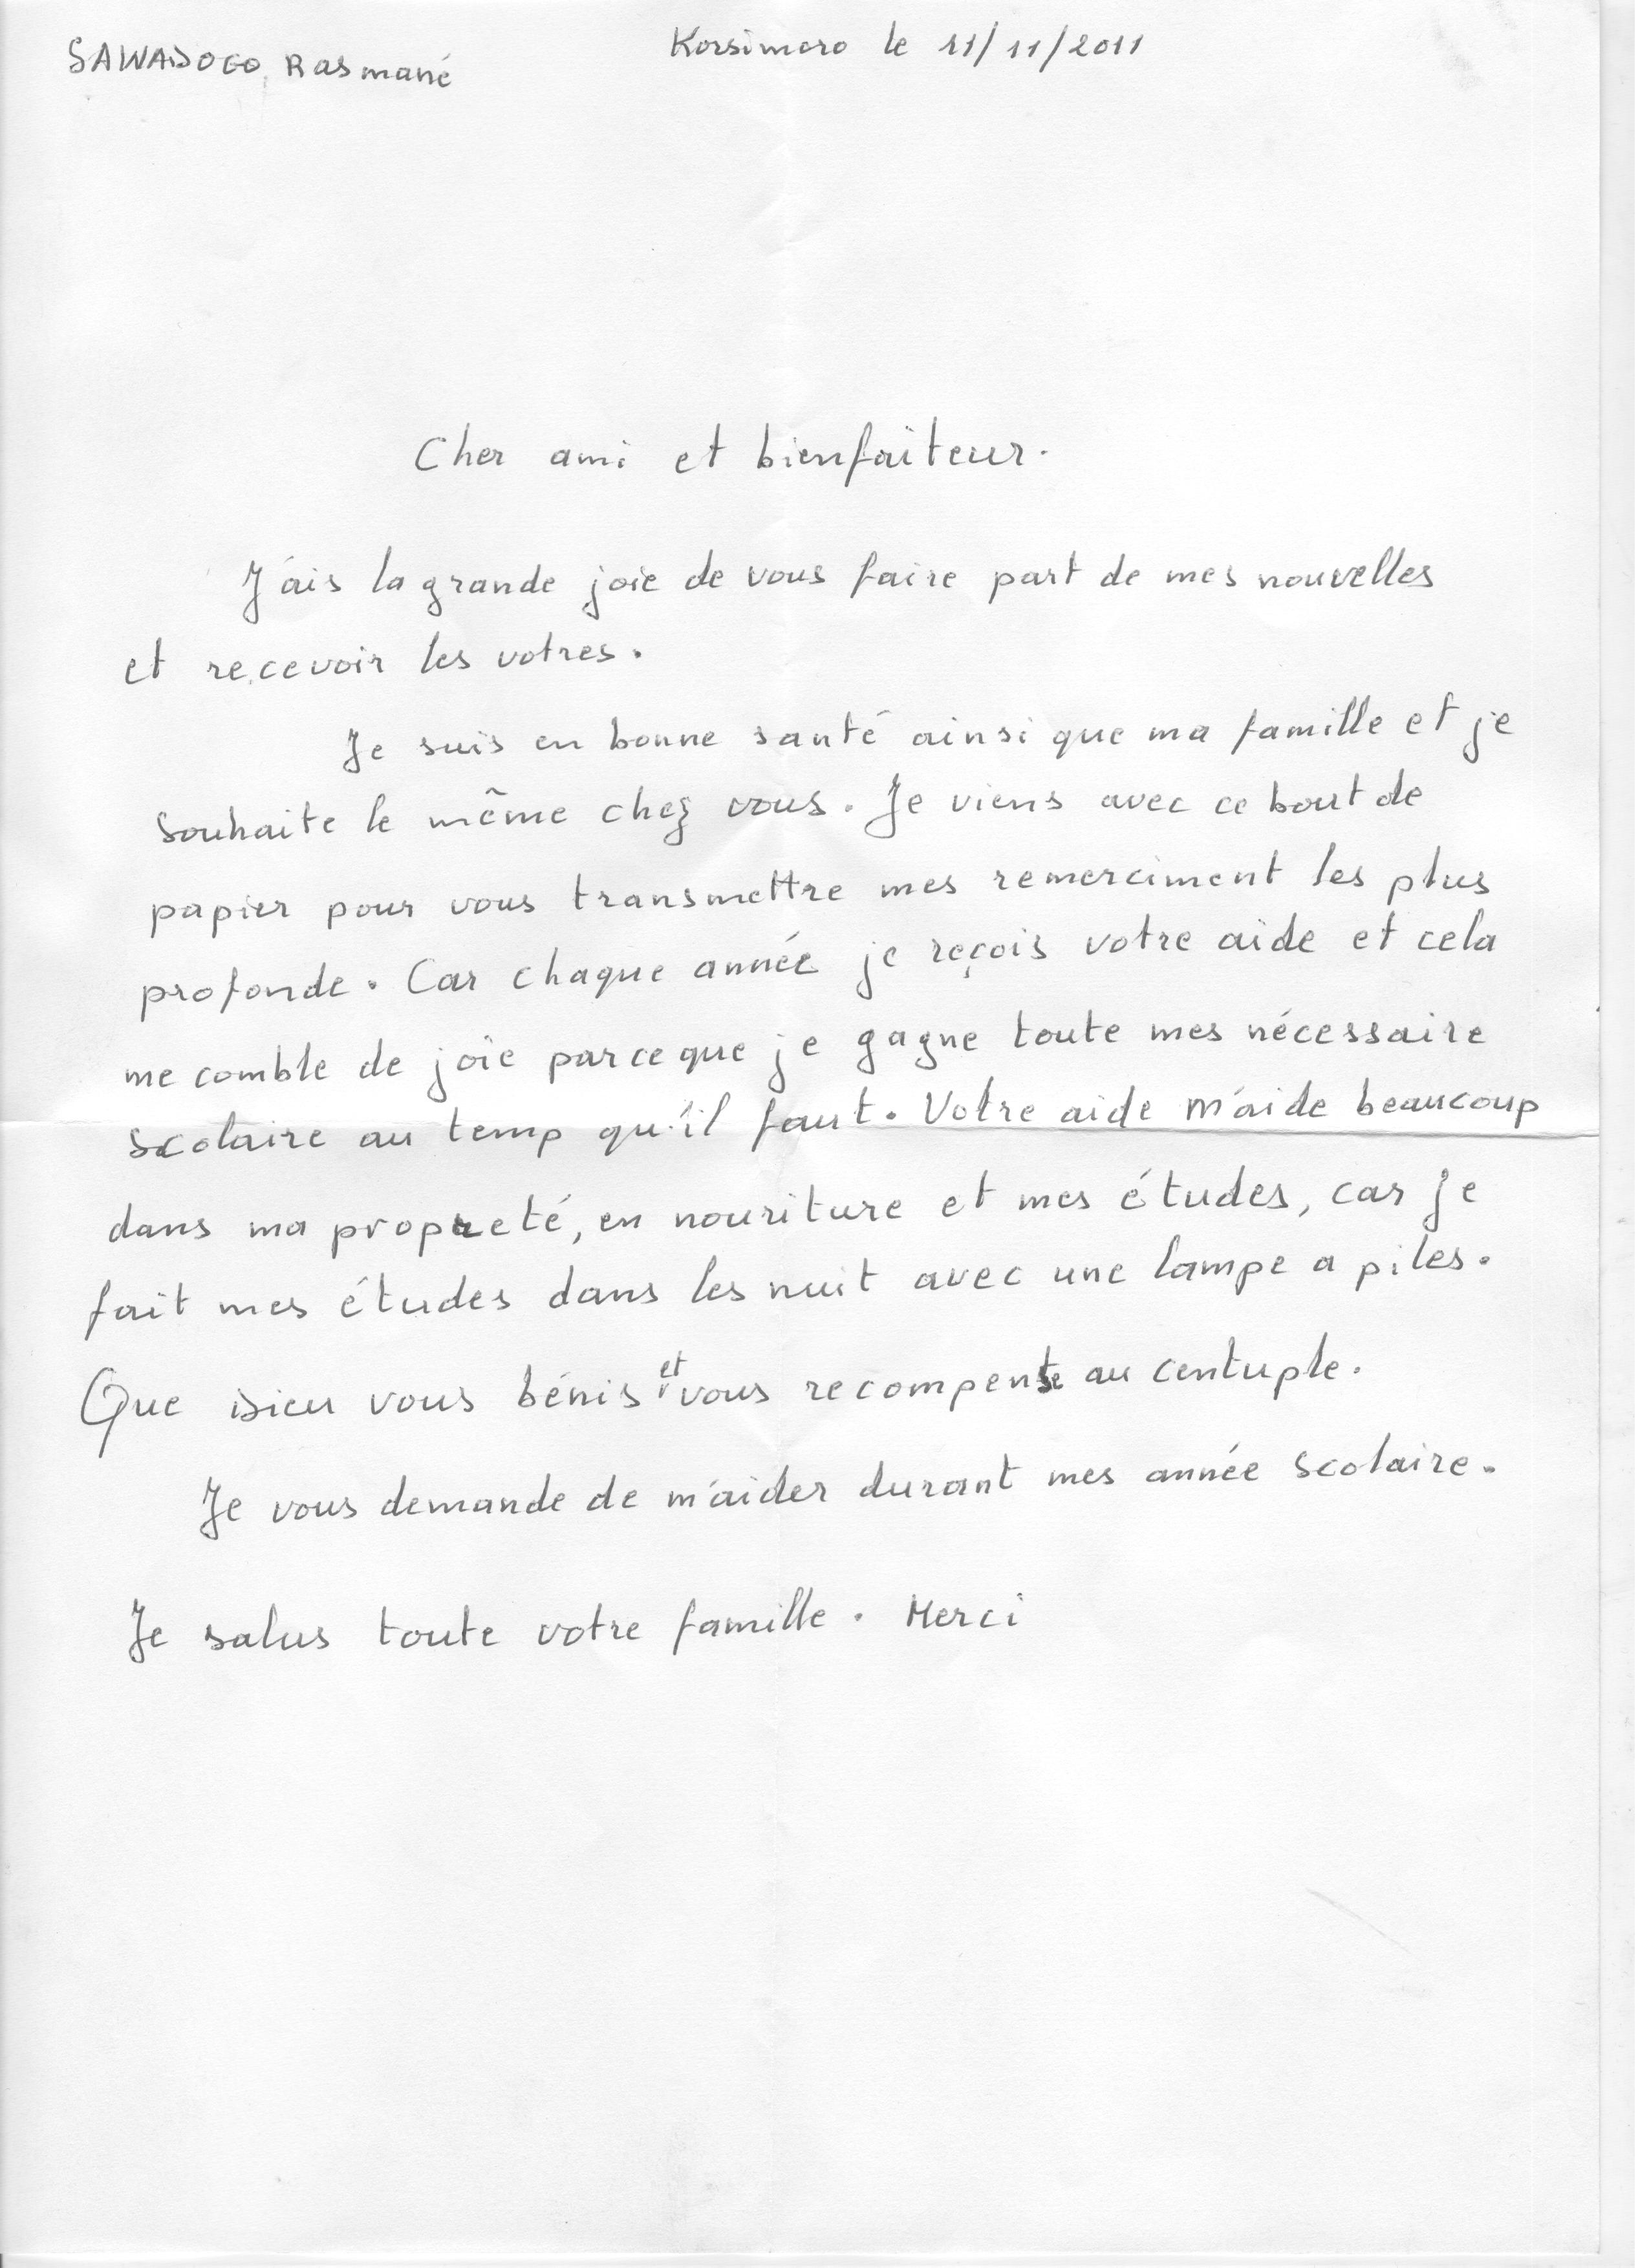 SAWADOGO Rasmané
Korsimoro le 11/11/2011
Cher ami et bienfaiteur.
J'ais la grande joie de vous faire part de mes nouvelles
et recevoir les votres.
Je suis en bonne santé ainsi que ma famille et je
souhaite le même chez vous. Je viens avec ce bout de
papier pour vous transmettre mes remerciment les plus
profonde. Car chaque année je reçois votre aide et cela
me comble de joie parceque je gagne toute mes nécessaire
scolaire au temp qu'il faut. Votre aide m'aide beaucoup
dans ma propreté, en nouriture et mes études, car je
fait mes études dans les nuit avec une lampe a piles.
Que Dieu vous bénis et vous recompense au centuple.
Je vous demande de m'aider durant mes année scolaire.
Je salus toute votre famille. Merci